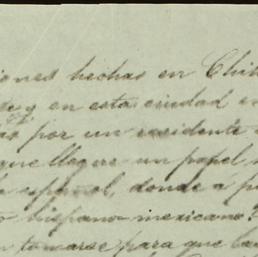 iones hechas en Chi
y en esta ciudad en
por un residente
que llegue un papel
español, donde a p
hispano-mexicano?
tomarse para que la